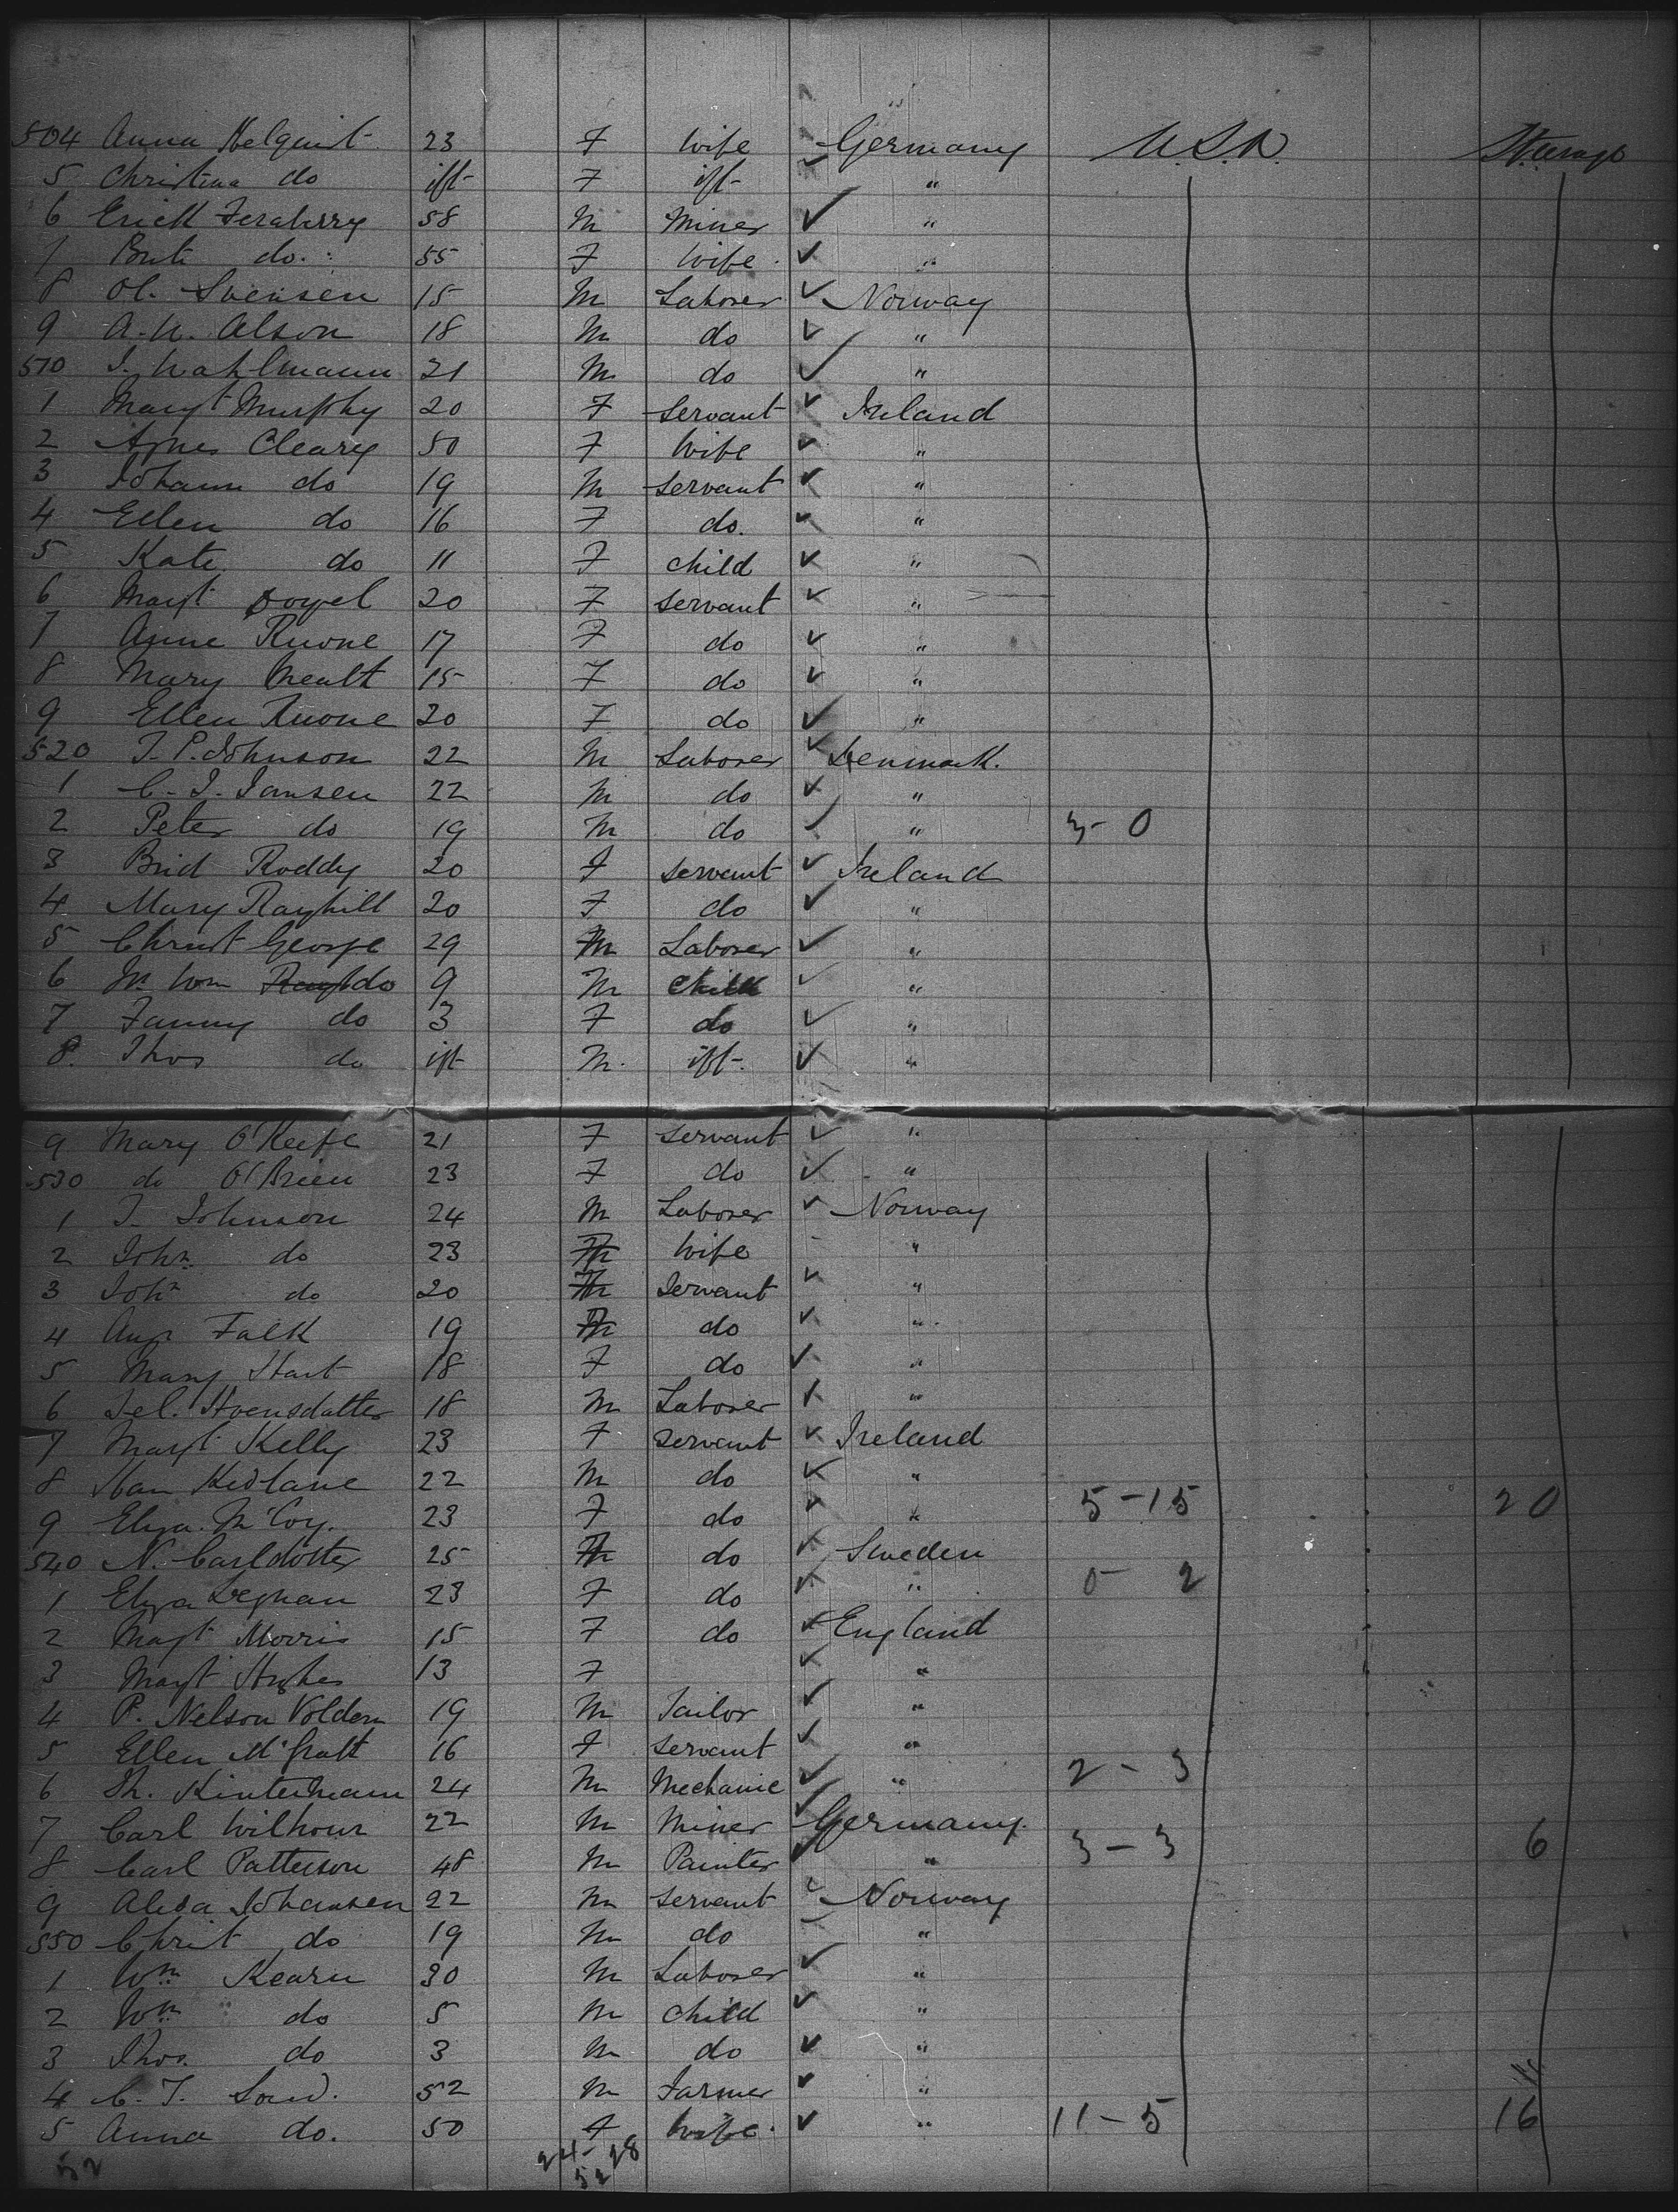 504 Anna Helquist 23 F wife Germany U.S.A. Steerage
5 Christina do ift F ift "
6 Erick 58 M Miner ✓ "
7 Brit do. 55 F Wife ✓ "
8 Ol. Svensen 15 M Laborer ✓ Norway
9 A. W. Olson 18 M do ✓ "
510 J. Wahlmann 21 M do ✓ "
1 Margt Murphy 20 F Servant ✓ Ireland
2 Agnes Cleary 50 F Wife ✓ "
3 Johann do 19 M Servant ✓ "
4 Ellen do 16 F do. ✓ "
5 Kate do 11 F child ✓ "
6 Margt 20 F Servant ✓ "
7 Anne 17 F do ✓ "
8 Mary 15 F do ✓ "
9 Ellen 20 F do ✓ "
520 J. P. Johnson 22 M Laborer ✓ Denmark.
1 C. J. Jansen 22 M do ✓ "
2 Peter do 19 M do ✓ " 3-0
3 Brid Roddy 20 F Servant ✓ Ireland
4 Mary Rayhill 20 F do ✓ "
5 Christ George 29 M Laborer ✓ "
6 Wm do 9 M Child ✓ "
7 Fanny do 3 F do ✓ "
8. Thos do ift M. ift. ✓ "
9 Mary O'Keefe 21 F Servant ✓ "
530 do O'Brien 23 F do ✓ "
1 J. Johnson 24 M Laborer ✓ Norway
2 John do 23 F Wife "
3 John do 20 F Servant ✓ "
4 Falk 19 F do ✓ "
5 Mary Hart 18 F do ✓ "
6 18 M Laborer ✓ "
7 Margt Kelly 23 F Servant ✓ Ireland
8 22 M do ✓ "
9 Eliza. McCoy. 23 F do ✓ " 5-15 20
540 N. Carldotter 25 F do ✓ Sweden
1 Eliza Degnan 23 F do ✓ " 0-2
2 Magt Morris 15 F do ✓ England
3 Magt Hughes 13 F ✓ "
4 P. Nelson Volden 19 M Tailor ✓ "
5 Ellen McGratt 16 F Servant ✓ "
6 24 M Mechanic ✓ " 2-3
7 Carl 22 M Miner ✓ Germany.
8 Carl Patterson 48 M Painter ✓ " 3-3 6
9 Alida Johansen 22 M Servant ✓ Norway
550 Christ do 19 M do "
1 Wm Kearn 30 M Laborer ✓ "
2 Wm do 5 M Child ✓ "
3 Thos. do 3 M do ✓ "
4 C. J. 52 M Farmer ✓ "
5 Anna do. 50 F Wife. ✓ " 11-5 16
52 24-28
52